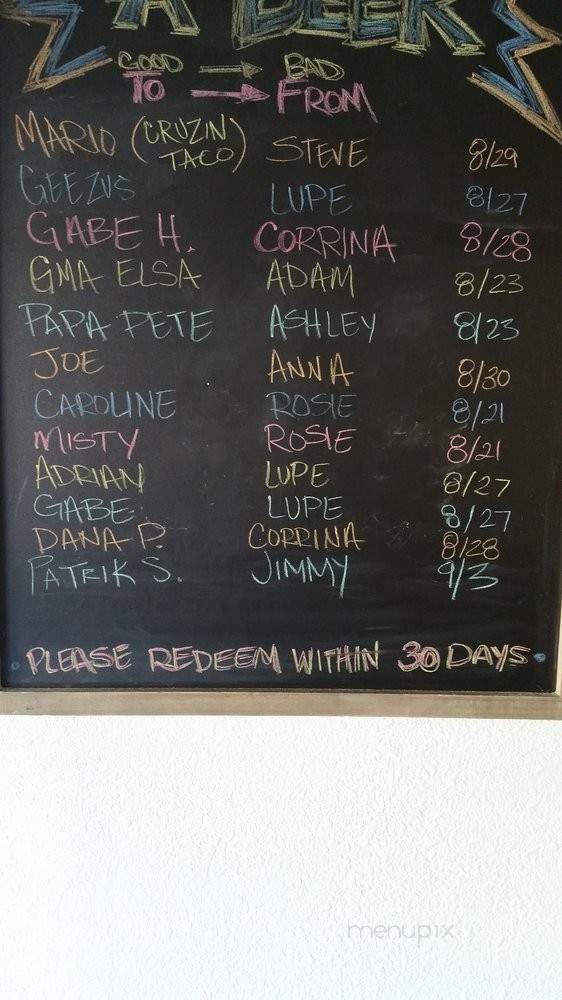 A BEER
GOOD → BAD
TO → FROM
MARIO (CRUZIN TACO) STEVE 8/29
GEEZUS LUPE 8/27
GABE H. CORRINA 8/28
GMA ELSA ADAM 8/23
PAPA PETE ASHLEY 8/23
JOE ANNA 8/30
CAROLINE ROSIE 8/21
MISTY ROSIE 8/21
ADRIAN LUPE 8/27
GABE LUPE 8/27
DANA P. CORRINA 8/28
PATRIK S. JIMMY 9/3
PLEASE REDEEM WITHIN 30 DAYS
menupix